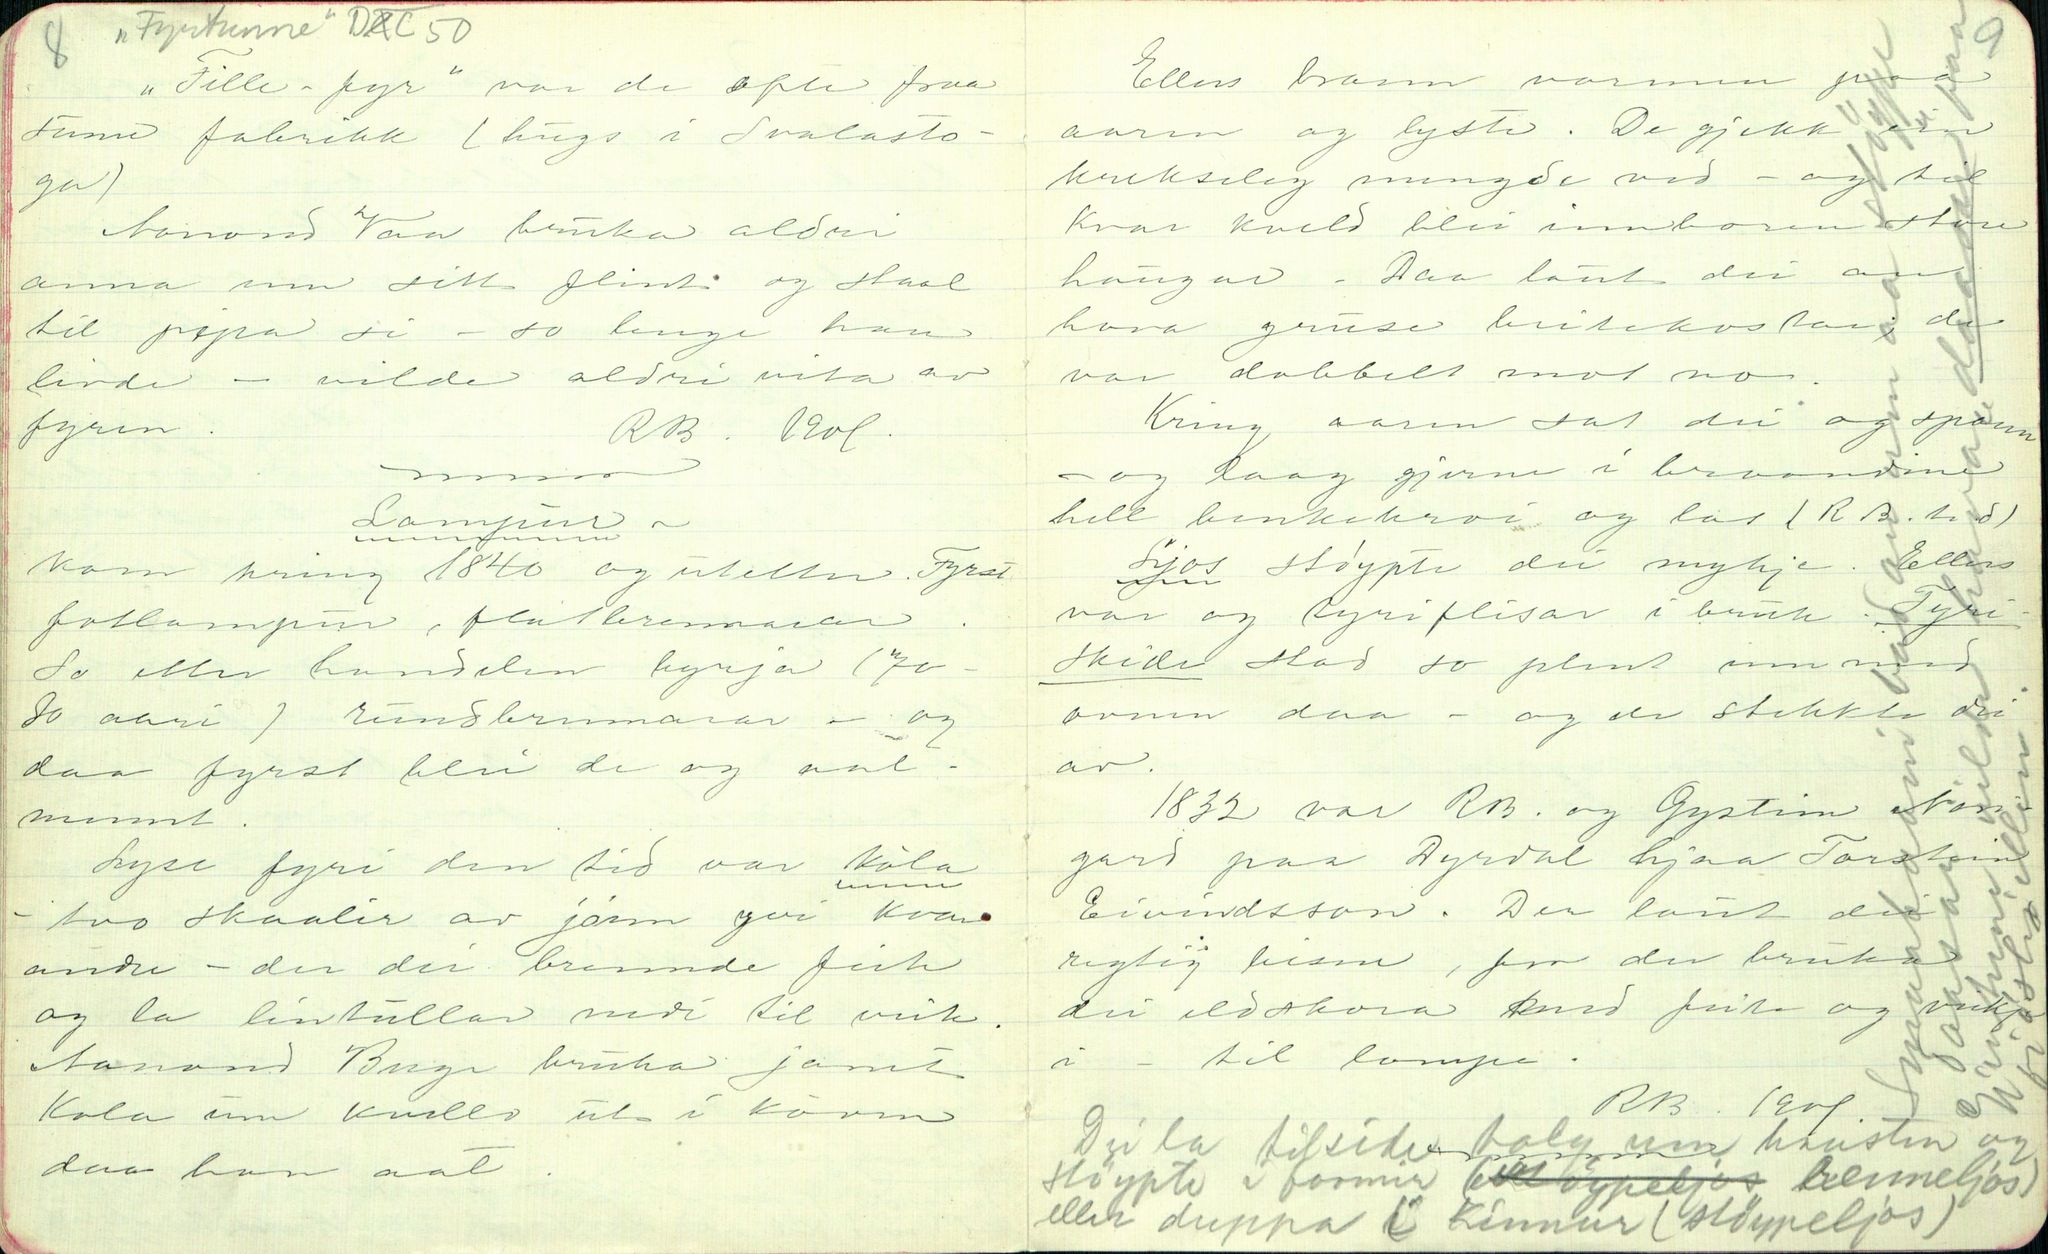 8 "Fyrtunne" DEC 50
"Fille-fyr" var de ofte fraa
sume fabrikk (hugs i Svalasto-
ga)
Aanond Vaa bruka aldri
anna enn sitt flint og staal
til pipa si - so lenge han
livde - vilde aldri vita av
fyren. RB. 1908.
Lampur -
kom kring 1840 og utetter. Fyrst
fotlampur, flatbrennarar.
So etter handelen byrja (70-
80 aari) rundbrennarar - og
daa fyrst blei de og aal-
mennt.
Lyse fyri den tid var kola
- tvo skaalir av jarn yvi kvar-
andre - der dei brennde feite
og la lintullar nedi til veik.
Aanond Bugi bruka jamt
kola um kvelds ut i koven
daa han aat.
9
Ellers brann varmen paa
aaren og lyste. De gjekk ein
kukseleg mengde ved - og til
kvar kveld blei innboren store
haugar. Daa laut dei au
hava gruse beitekostar, de
var dobbelt mot no.
Kring aaren sat dei og spann
- og laag gjerne i
hell benkekroi og las (RB. tid)
Ljos støypte dei mykje. Ellers
var og tyriflisar i bruk. Tyri-
skide stod so plent inn med
ovnen daa - og de stekkte dei
av.
1832 var RB. og Gystein Nori-
gard paa Dyrdal hjaa Torstein
Eivindsson. Der laut dei
regtig , for der bruka
dei eldskora med feite og veikje
i - til lampe.
RB. 1908.
Dei la tilside talg um hausten og
støypte i formir (støypeljos henneljos)
eller duppa i Kinnur (støypeljos)